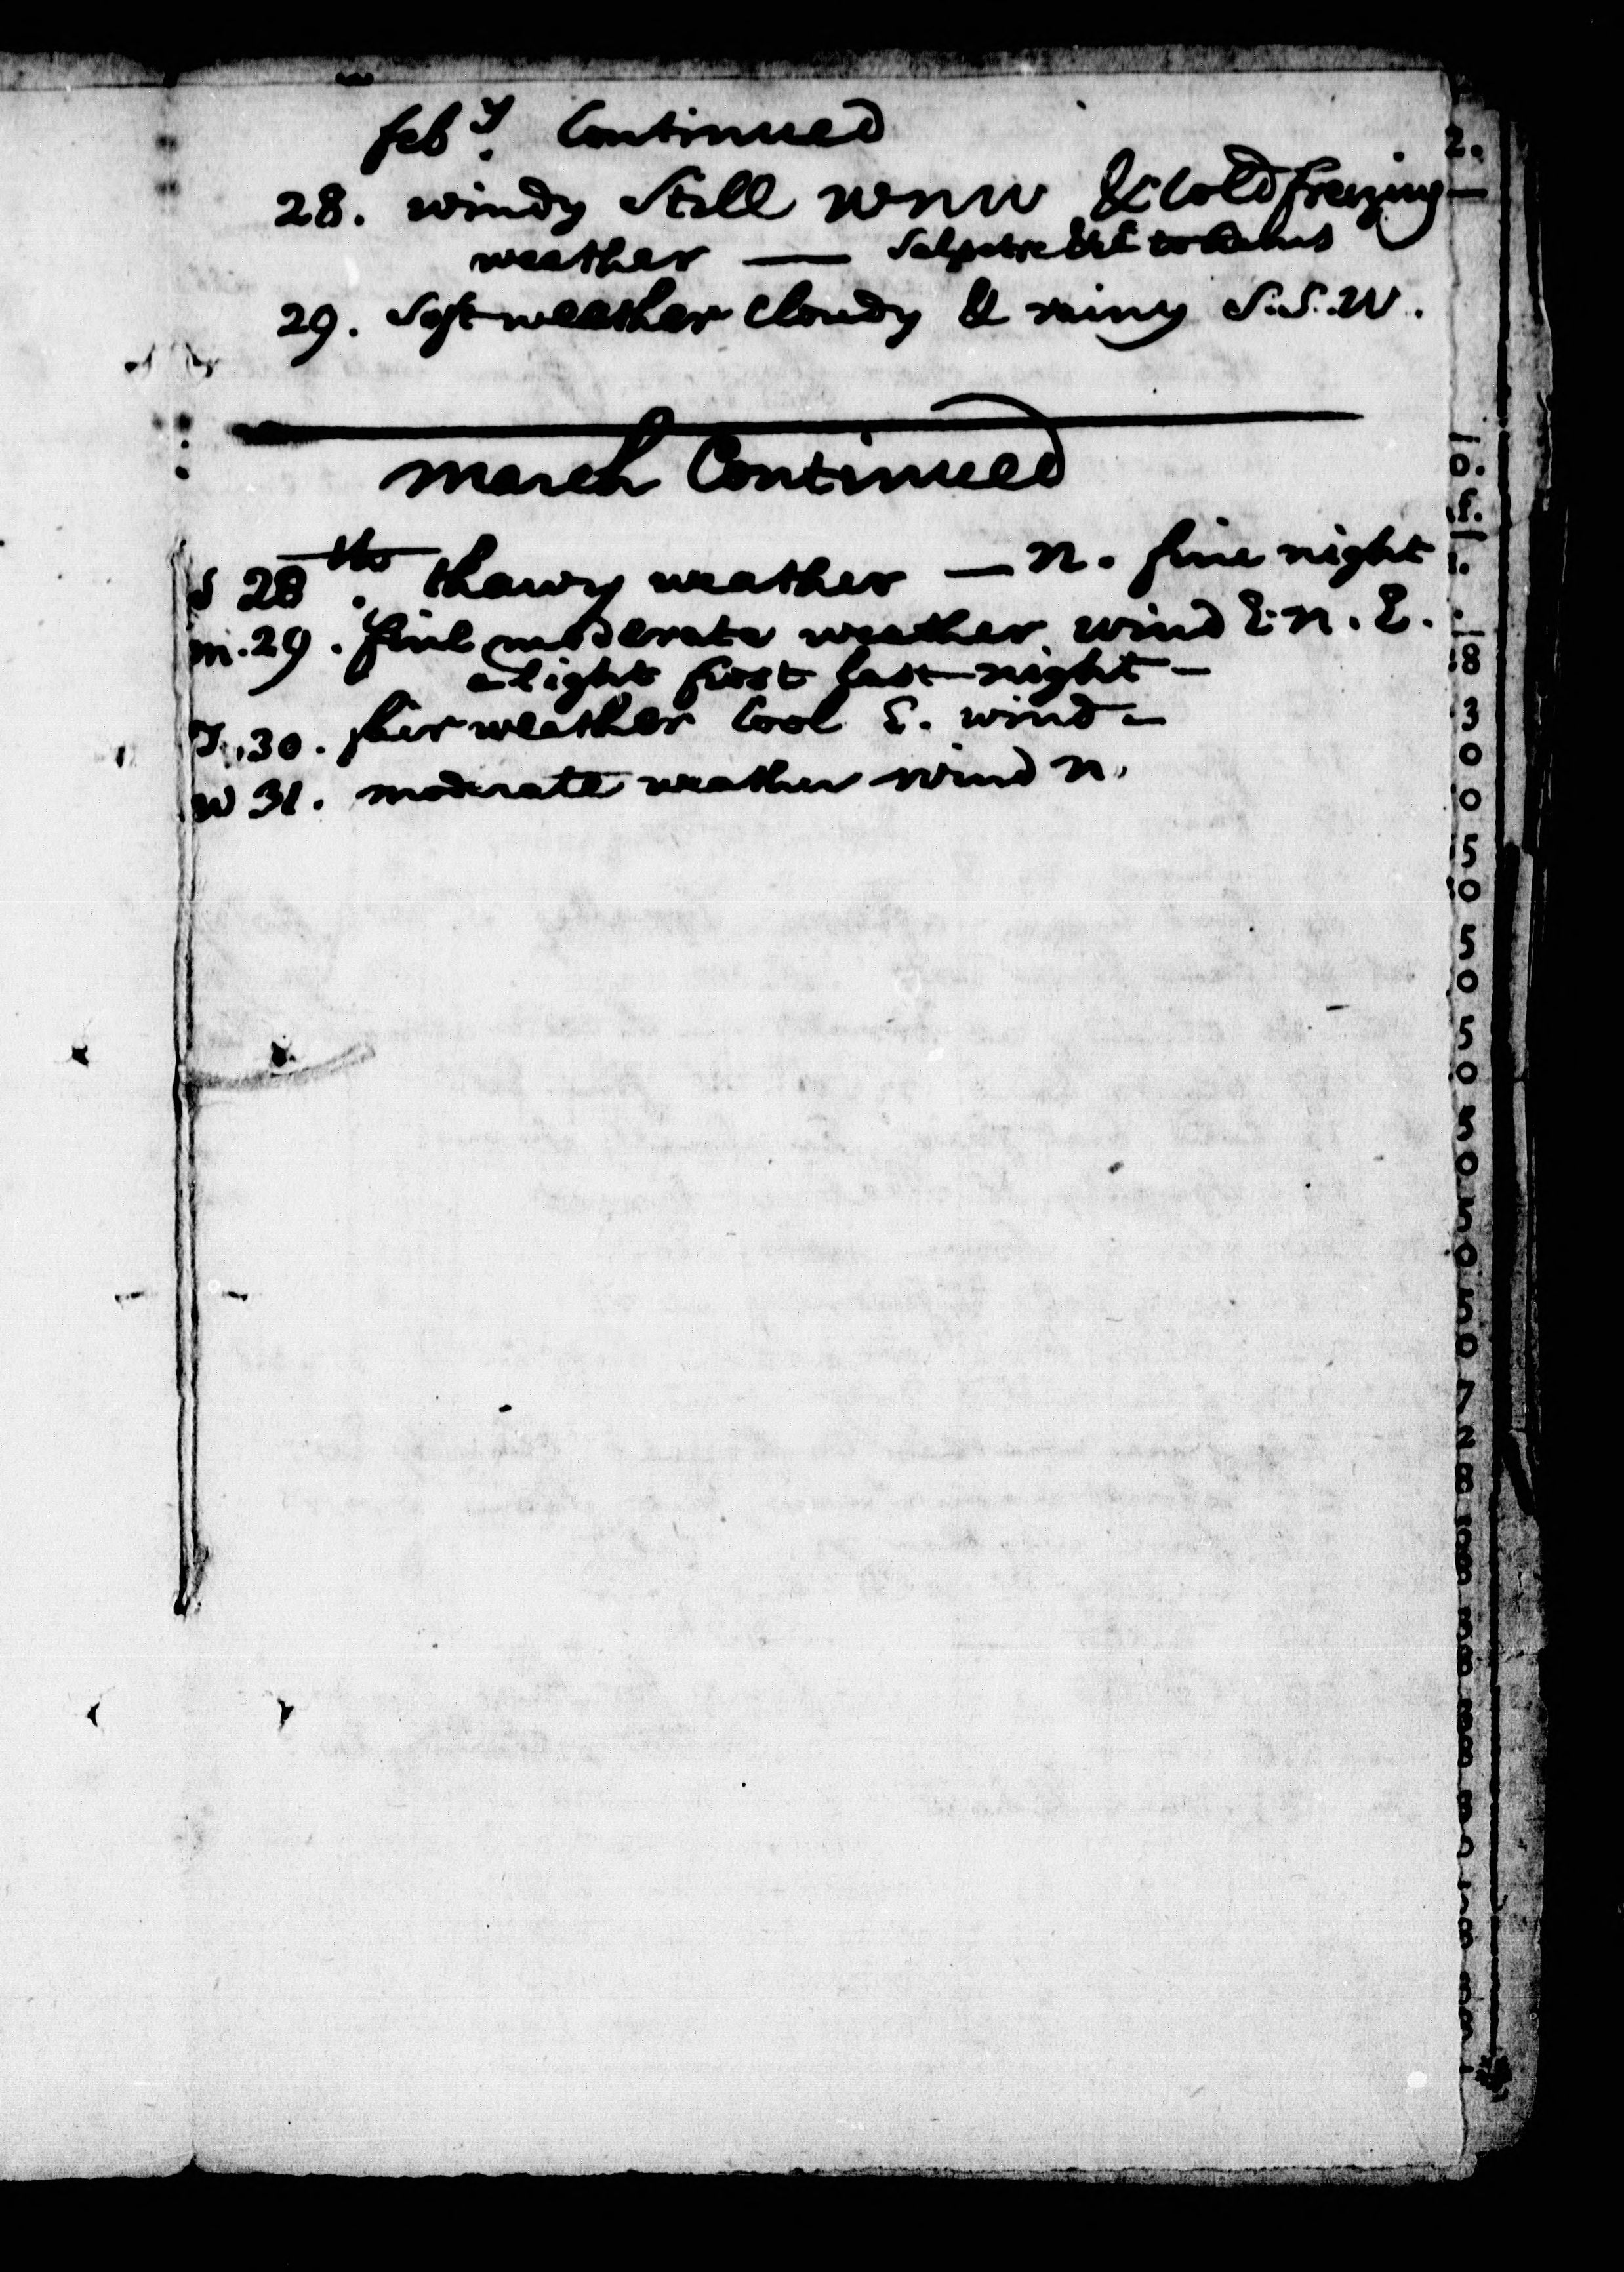 feby. Continued
28. windy Still WNW & Cold freezing —
weather — Salpetre
29. Soft weather Cloudy & rainy S.S.W.
March Continued
S 28th. thawy weather — N. fine night
M. 29. fine moderate weather wind E.N.E.
a light frost last night —
T. 30. fair weather Cool E. wind —
W 31. moderate weather wind N.